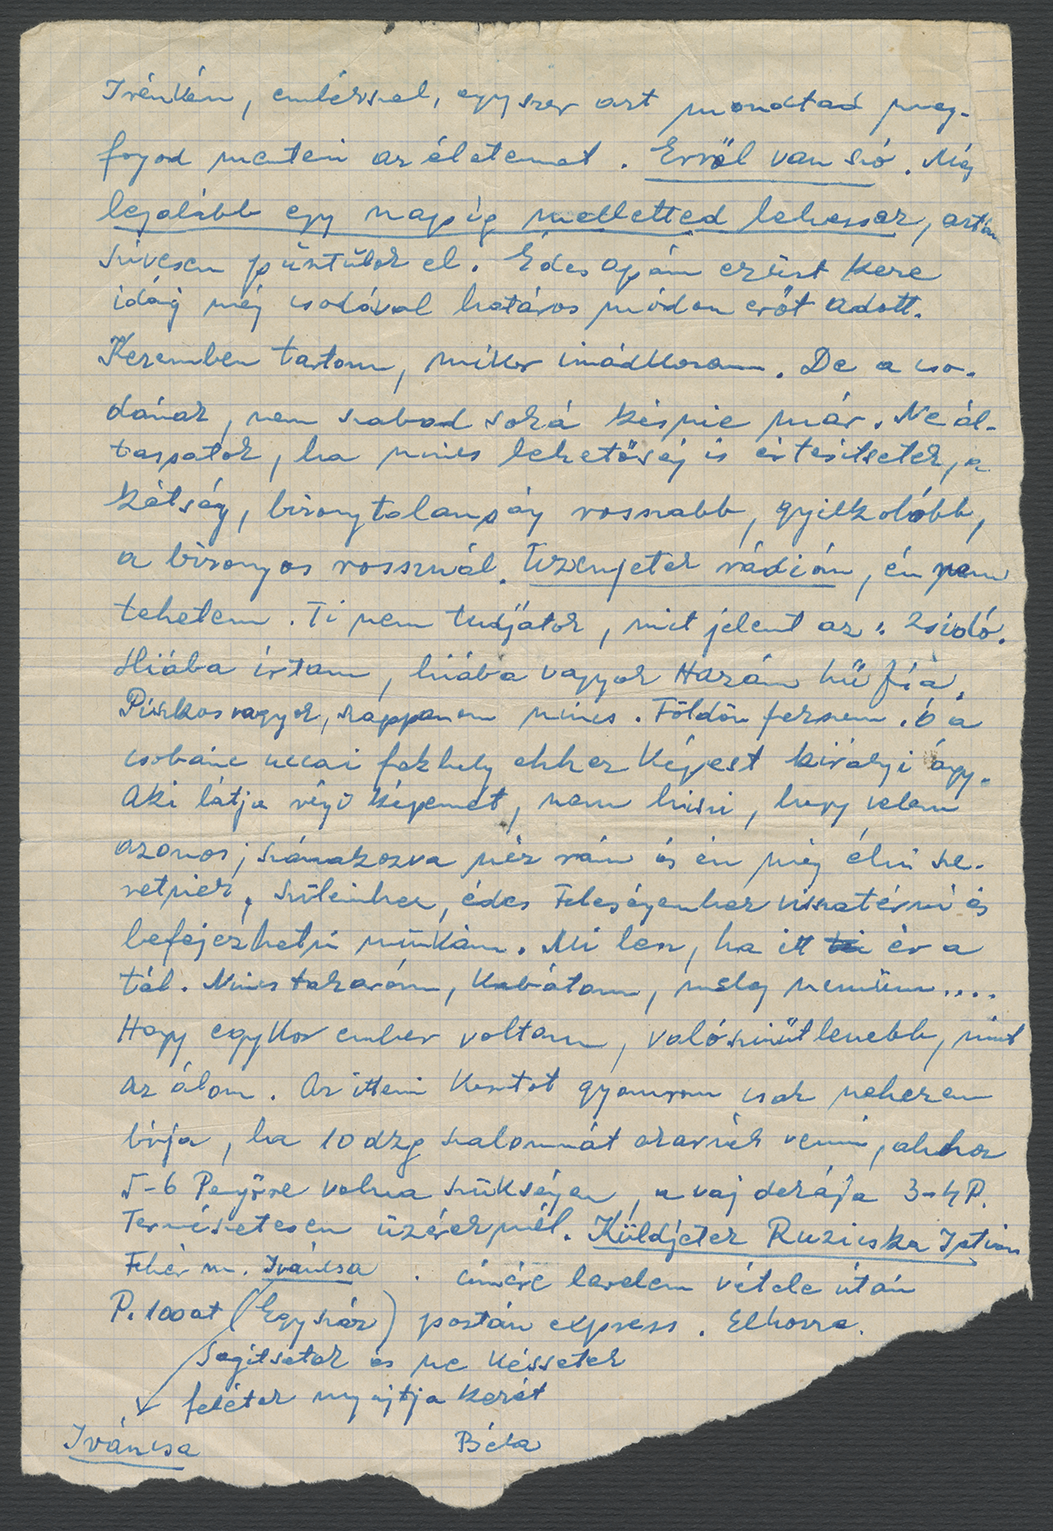 Irénkém, emlékszel, egyszer azt mondtad meg-
fogod menteni az életemet. Erről van szó. Még
legalább egy napig melletted lehessek, aztán
szivesen pusztulok el. Édes apám ezüst kere
idáig még csodával határos módon erőt adott.
Kezemben tartom, mikor imádkozom. De a cso-
dának, nem szabad soká késnie már. Ne ál-
tassatok, ha nincs lehetőség is értesitsetek, a
kétség, bizonytalanság rosszabb, gyilkolóbb,
a bizonyos rossznál. Üzenjetek rádión, én nem
tehetem. Ti nem tudjátok, mit jelent az: Zsidó.
Hiába irtam, hiába vagyok Hazám hű fia.
Piszkos vagyok, szappanom nincs. Földön fekszem. Ó a
csobánc uccai fekhely ehhez képest királyi ágy.
Aki látja régi képemet, nem hiszi, hogy velem
azonos; szánakozva néz rám és én még élni sze-
retnék, szüleimhez, édes Feleségemhez visszatérni és
befejezhetni munkám. Mi lesz, ha itt ér a
tél. Nincs takaróm, kabátom, meleg nemüm....
Hogy egykor ember voltam, valószinütlenebb, mint
az álom. Az itteni kosztot gyomrom csak nehezen
birja, ha 10 dkg szalonnát akarnék venni, ahhoz
5-6 Pengőre volna szükségem, a vaj dekája 3-4 P.
Természetesen üzérkednél. Küldjetek Ruzicska István
Fehér m. Iváncsa . cimére levelem vétele után
P. 100at (Egyszáz) postán express. Elhozza.
Segitsetek és ne késsetek
felétek nyujtja kezét
Iváncsa Béla